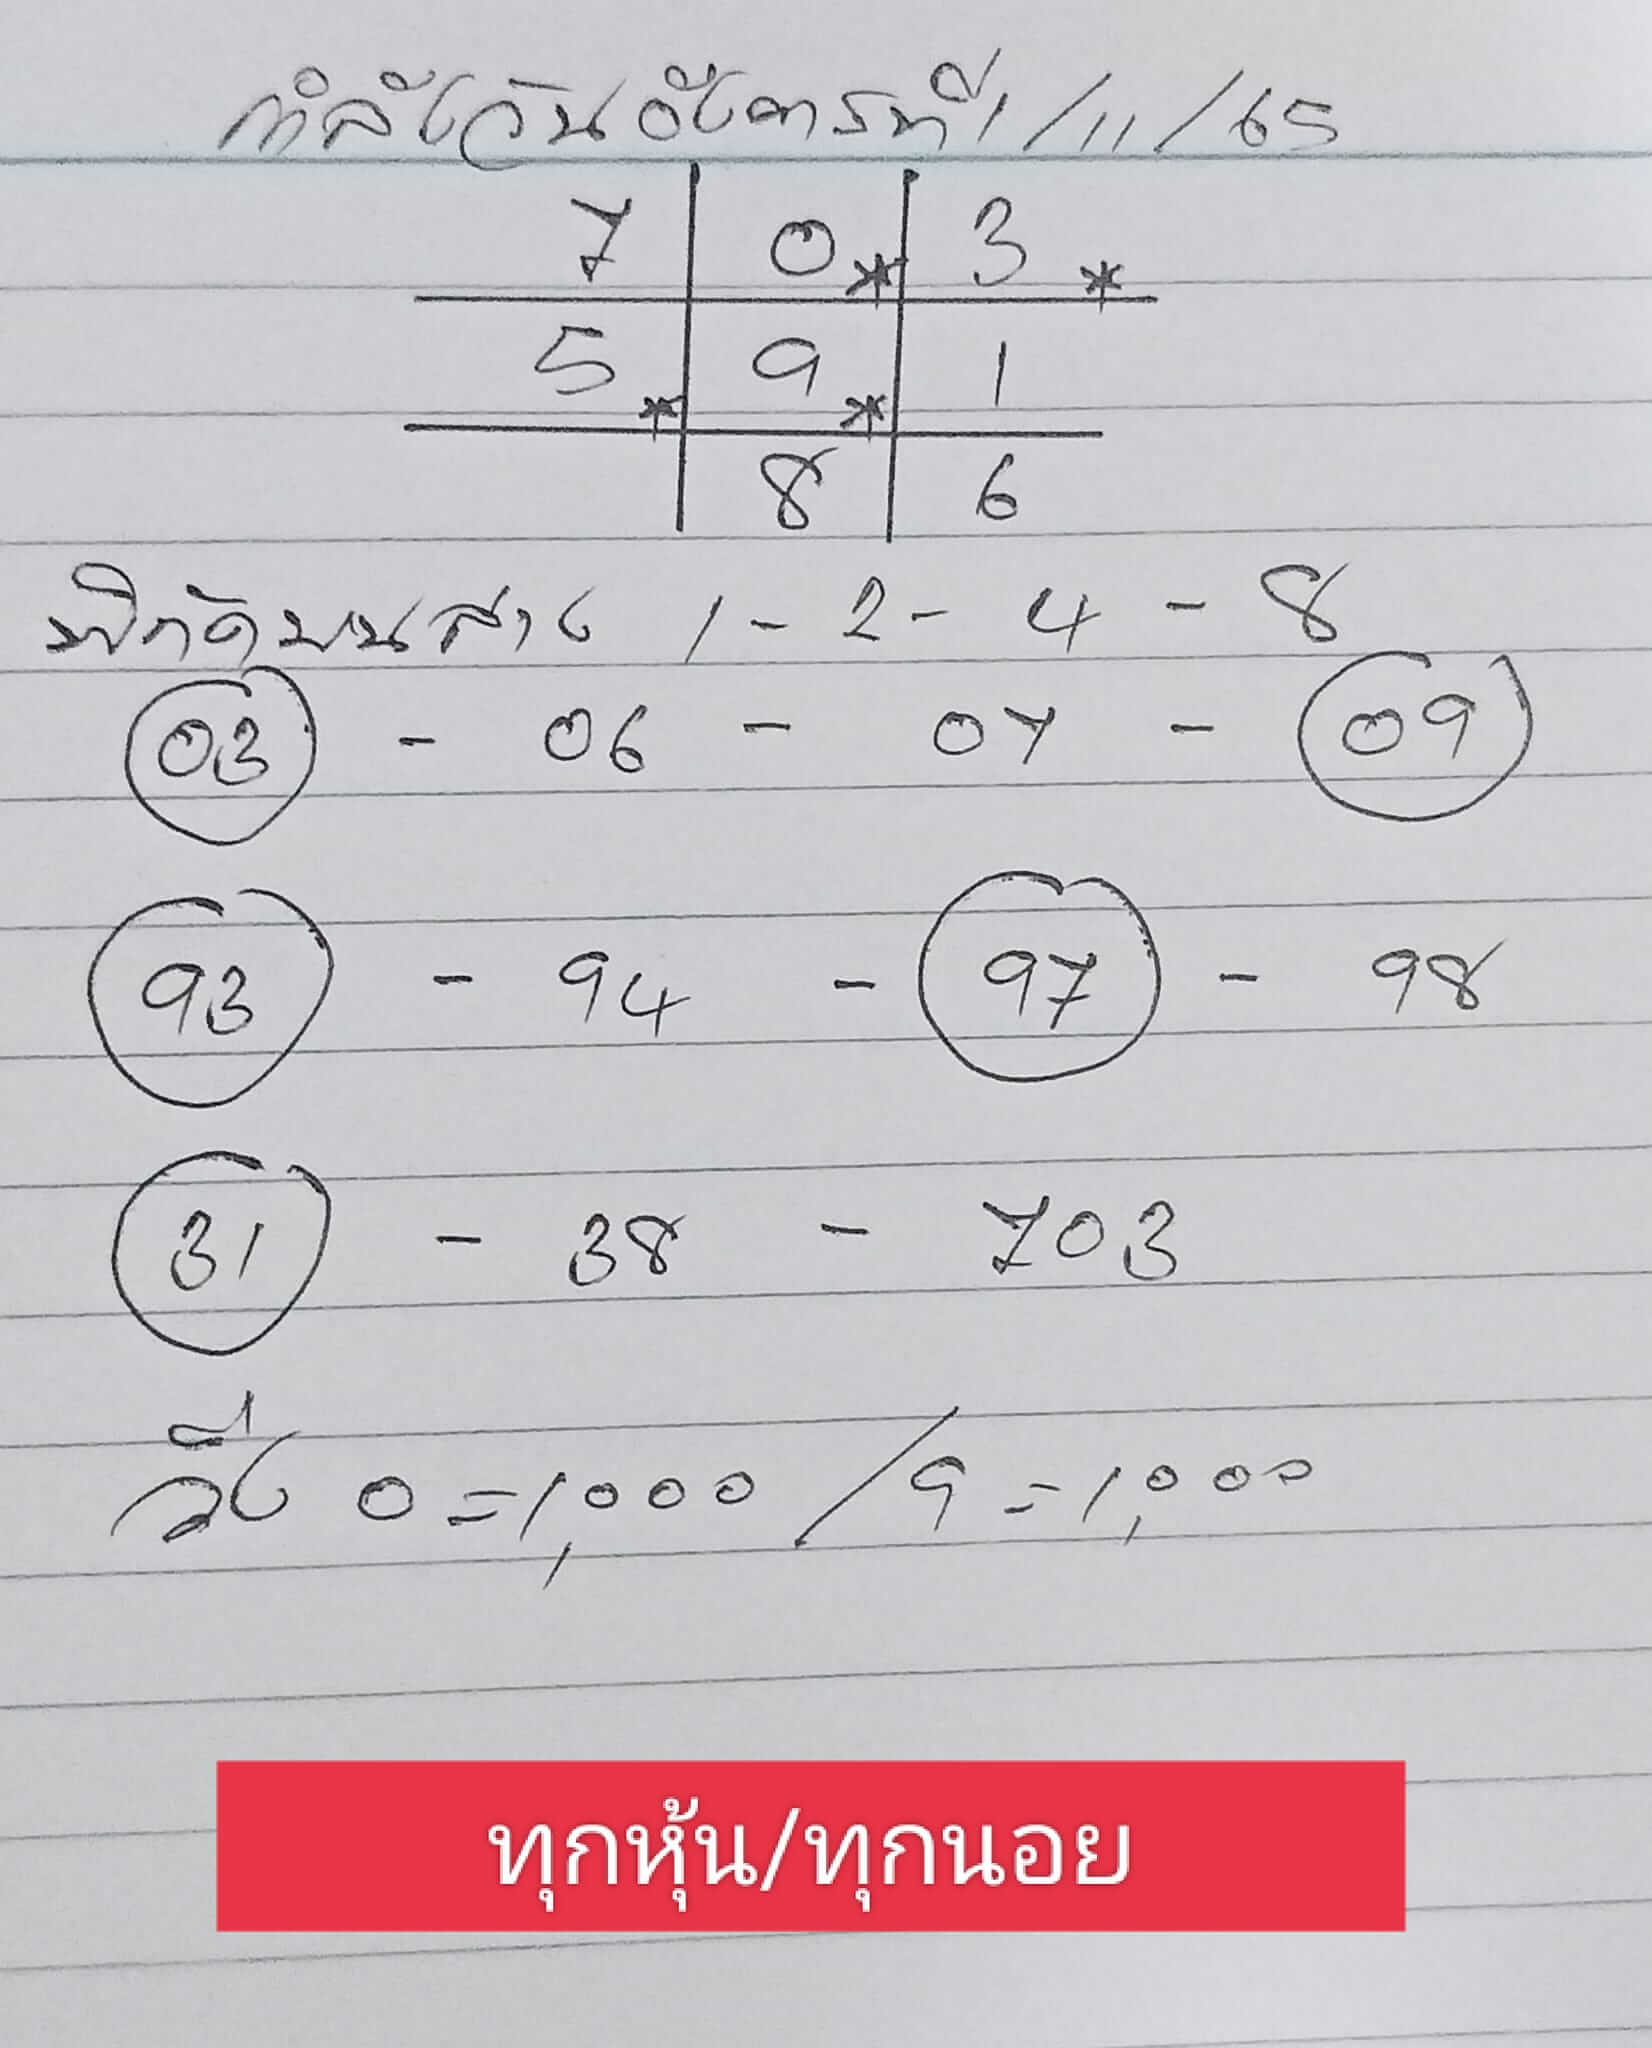 กำลังวันอังคารที่ 1/11/65
7 0* 3*
5* 9* 1
8 6
พิกัดบนล่าง 1 - 2 - 4 - 8
03 - 06 - 07 - 09
93 - 94 - 97 - 98
31 - 38 - 703
วิ่ง 0 = 1,000 / 9 = 1,000
ทุกหุ้น/ทุกนอย